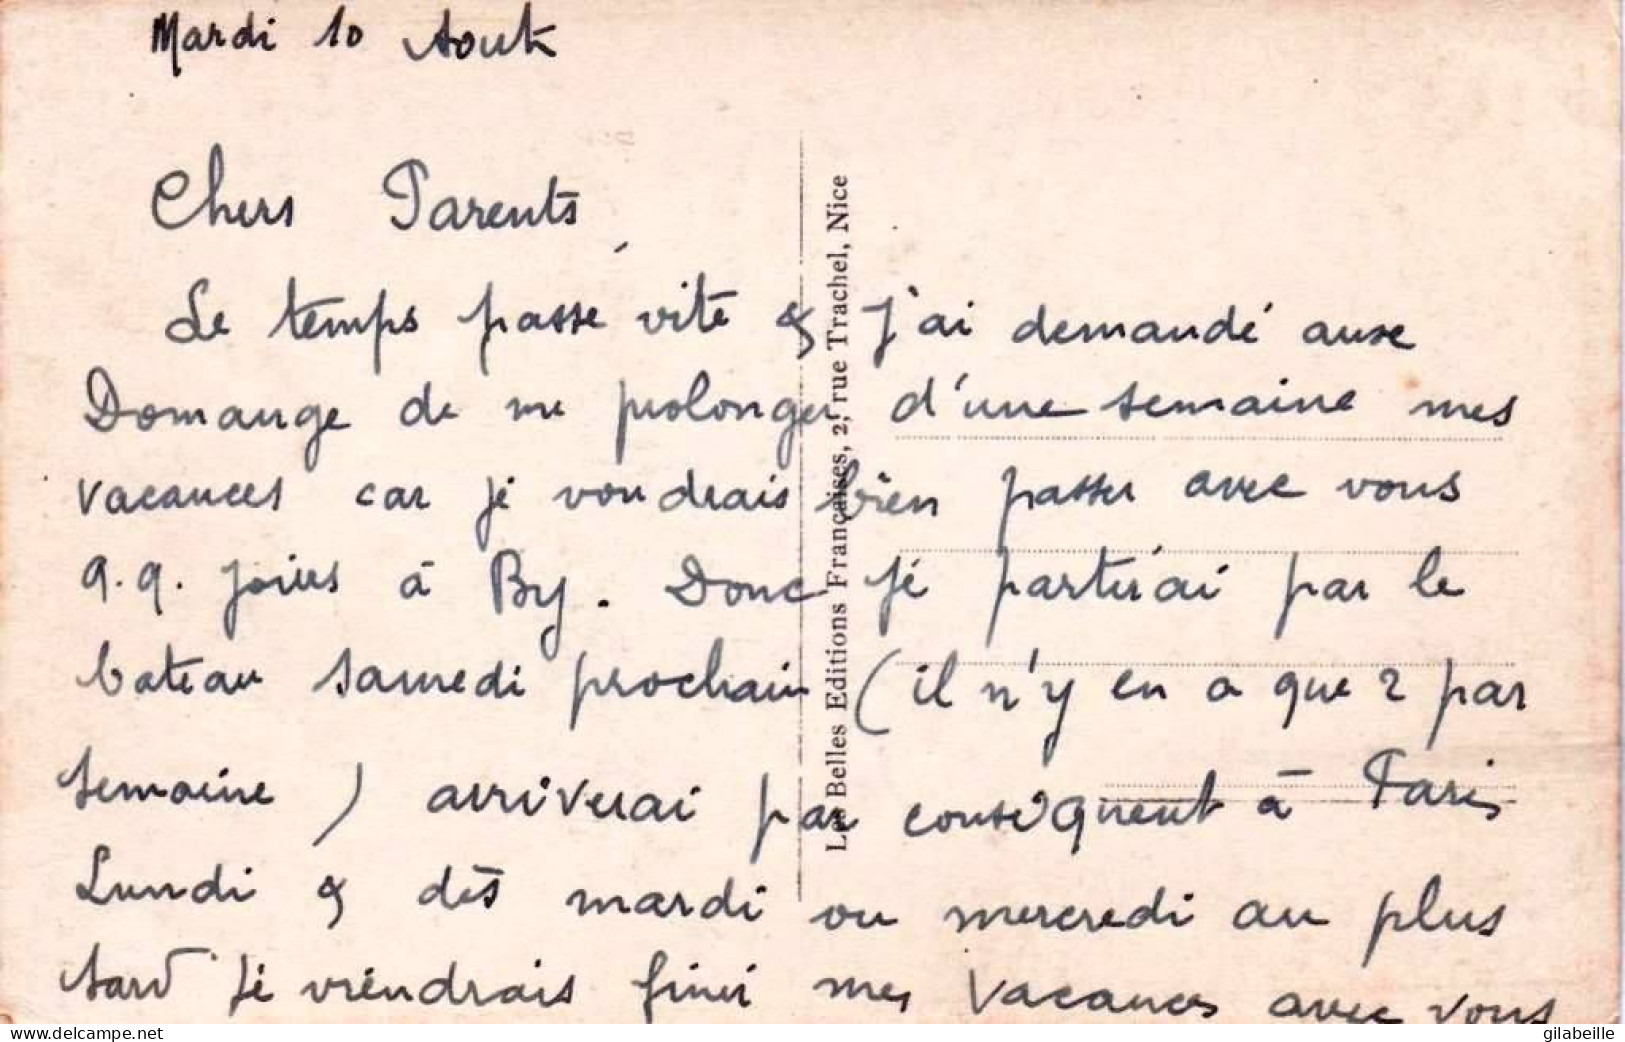 Mardi 10 Aout
Chers Parents,
Le temps passe vite & j'ai demandé aux
Domange de me prolonger d'une semaine mes
vacances car je voudrais bien passer avec vous
q.q. jours à By. Donc je partirai par le
bateau samedi prochain (il n'y en a que 2 par
semaine) arriverai par conséquent à Paris
Lundi & dès mardi ou mercredi au plus
tard je viendrais finir mes vacances avec vous
Les Belles Editions Françaises, 2, rue Trachel, Nice
www.delcampe.net
gilabeille